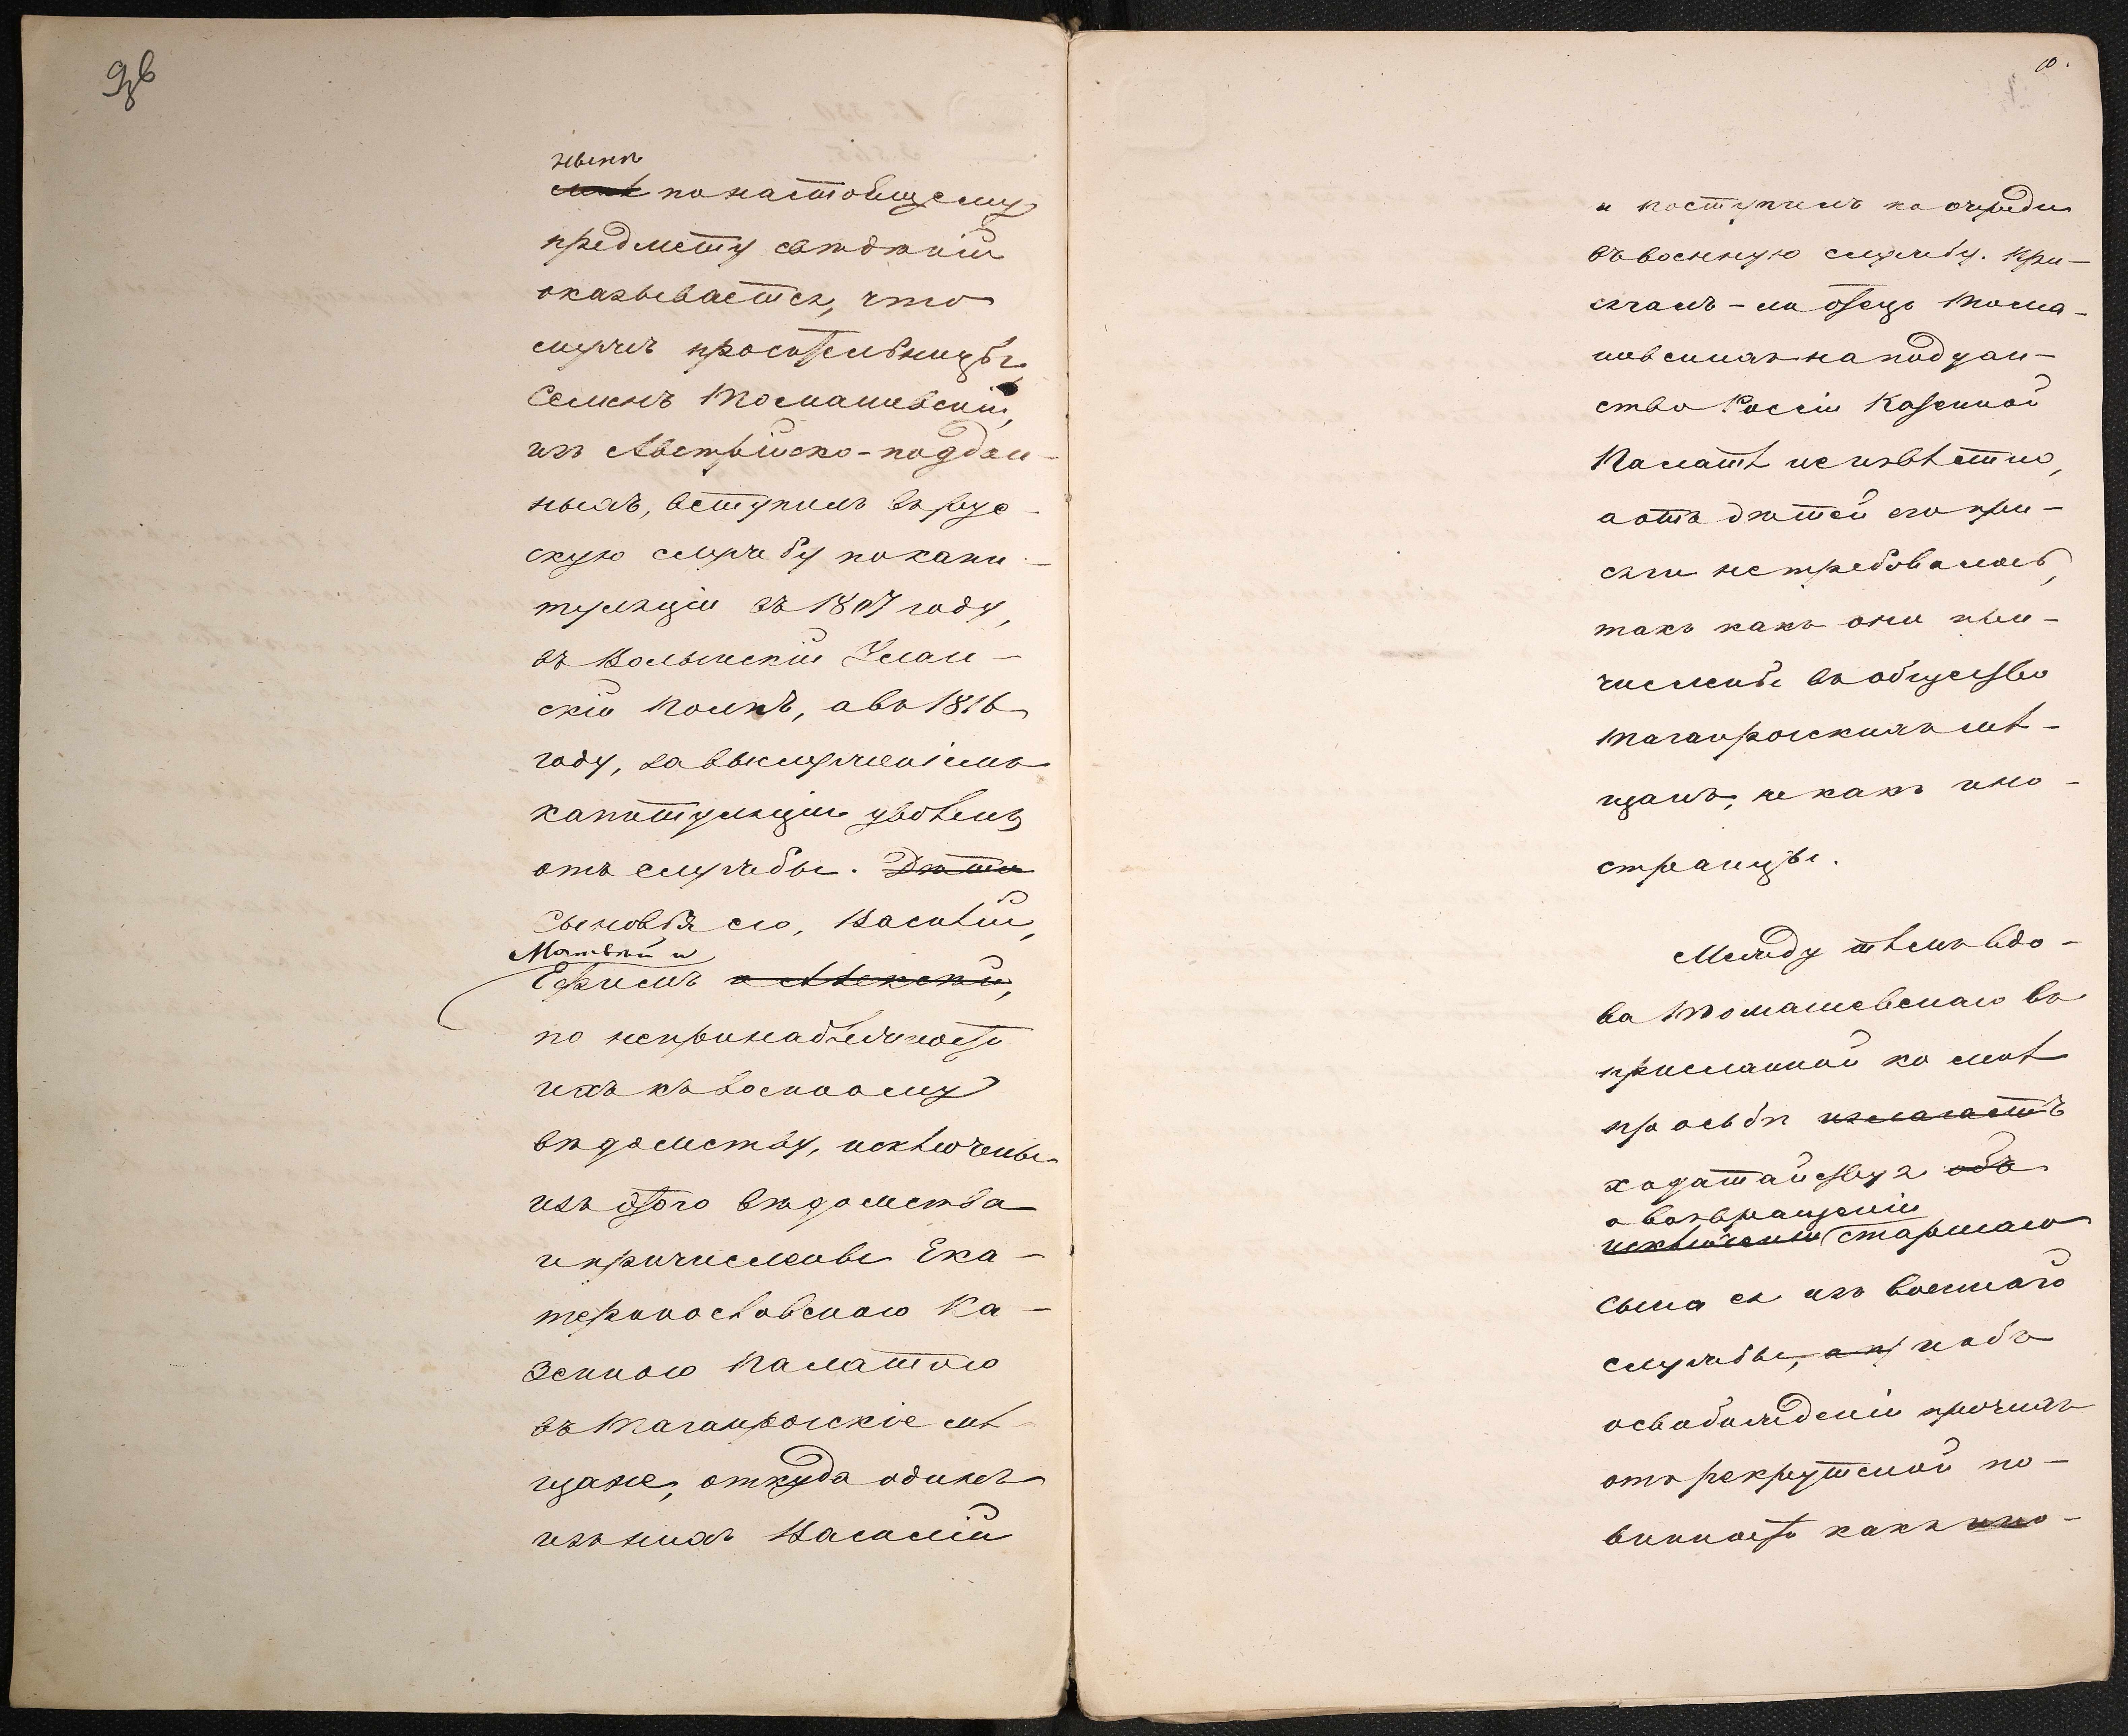 9об
ныхъ
~~мнѣ~~ по настоящему
предмету свѣдѣній
оказывается, что
мужъ просительницы
Семенъ Томашевскій,
изъ Австрійско-поддан-
ныхъ, вступилъ въ рус-
скую службу по капи-
туляціи въ 1807 году,
въ Волынскій Улан-
скій полкъ, а въ 1816
году, за выслуженіемъ
капитуляціи уволенъ
отъ службы. ~~Дѣти~~
Сыновья его, Василій,
Матвѣй и
Ефимъ ~~и Алексѣй~~,
по непринадлежности
ихъ къ военному
вѣдомству, исключены
изъ этого вѣдомства
и причислены Ека-
теринославскою Ка-
зенною Палатою
въ Таганрогскіе мѣ-
щане, откуда одинъ
изъ нихъ Василій
10.
и поступилъ по очереди
въ военную службу. При-
сягалъ-ли отецъ Тома-
шевскихъ на поддан-
ство Россіи Казенной
Палатѣ неизвѣстно,
а отъ дѣтей его при-
сяги не требовалось,
такъ какъ они при-
числены въ общество
Таганрогскихъ мѣ-
щанъ, не какъ ино-
странцы.
Между тѣмъ вдо-
ва Томашевскаго въ
присланной ко мнѣ
просьбѣ ~~излагаетъ~~
ходатайствуя ~~объ~~
о возвращеніи
~~исключеніи~~ старшаго
сына ея изъ военной
службы, ~~а~~ и объ
освобожденіи прочихъ
отъ рекрутской по-
винности какъ ~~ино~~-